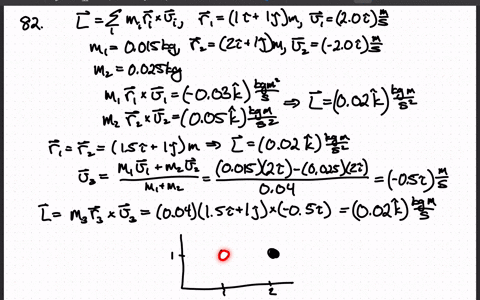 82. L⃗ = Σᵢ mᵢ r⃗ᵢ × v⃗ᵢ, r⃗₁ = (1î + 1ĵ)m, v⃗₁ = (2.0î) m/s
m₁ = 0.015kg, r⃗₂ = (2î + 1ĵ)m, v⃗₂ = (-2.0î) m/s
m₂ = 0.025kg
m₁ r⃗₁ × v⃗₁ = (-0.03k̂) kgm²/s
m₂ r⃗₂ × v⃗₂ = (0.05k̂) kgm/s² ⇒ L⃗ = (0.02k̂) kgm/s²
r⃗₁ = r⃗₂ = (1.5î + 1ĵ)m ⇒ L⃗ = (0.02k̂) kgm/s²
v⃗₃ = (m₁v⃗₁ + m₂v⃗₂)/(m₁ + m₂) = ((0.015)(2î) - (0.025)(2î))/0.04 = (-0.5î) m/s
L⃗ = m₃ r⃗₃ × v⃗₃ = (0.04)(1.5î + 1ĵ) × (-0.5î) = (0.02k̂) kgm/s
1
1 2